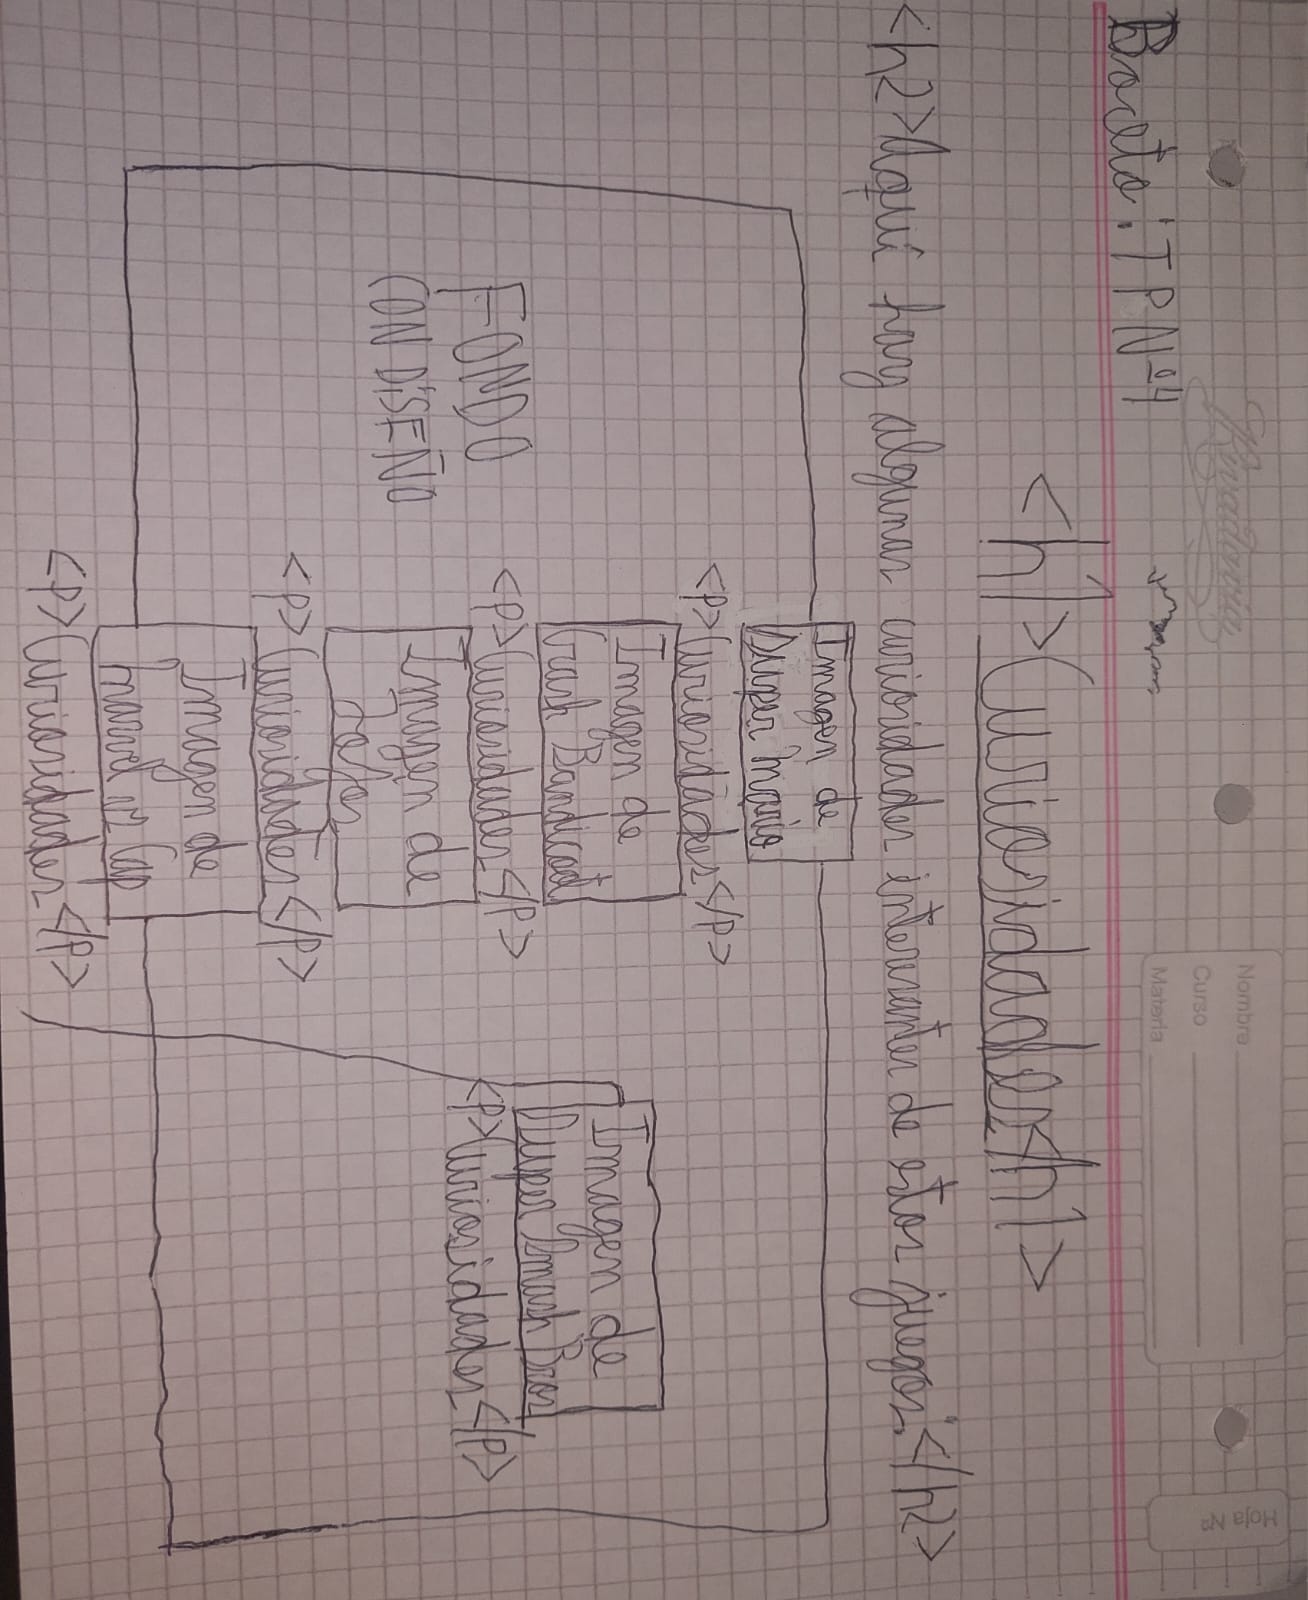 Rivadavia
Nombre
Curso
Materia
Hoja Nº
Boceto: TP Nº4
<h1>Curiosidades<h1>
<h2>Aquí hay algunas curiosidades interesantes de estos juegos:</h2>
Imagen de
Super Mario
<p>Curiosidades</p>
Imagen de
Crash Bandicoot
<p>Curiosidades</p>
Imagen de
Jojos
<p>Curiosidades</p>
Imagen de
Marvel vs Cap
<p>Curiosidades</p>
FONDO
CON DISEÑO
Imagen de
Super Smash Bros
<p>Curiosidades</p>